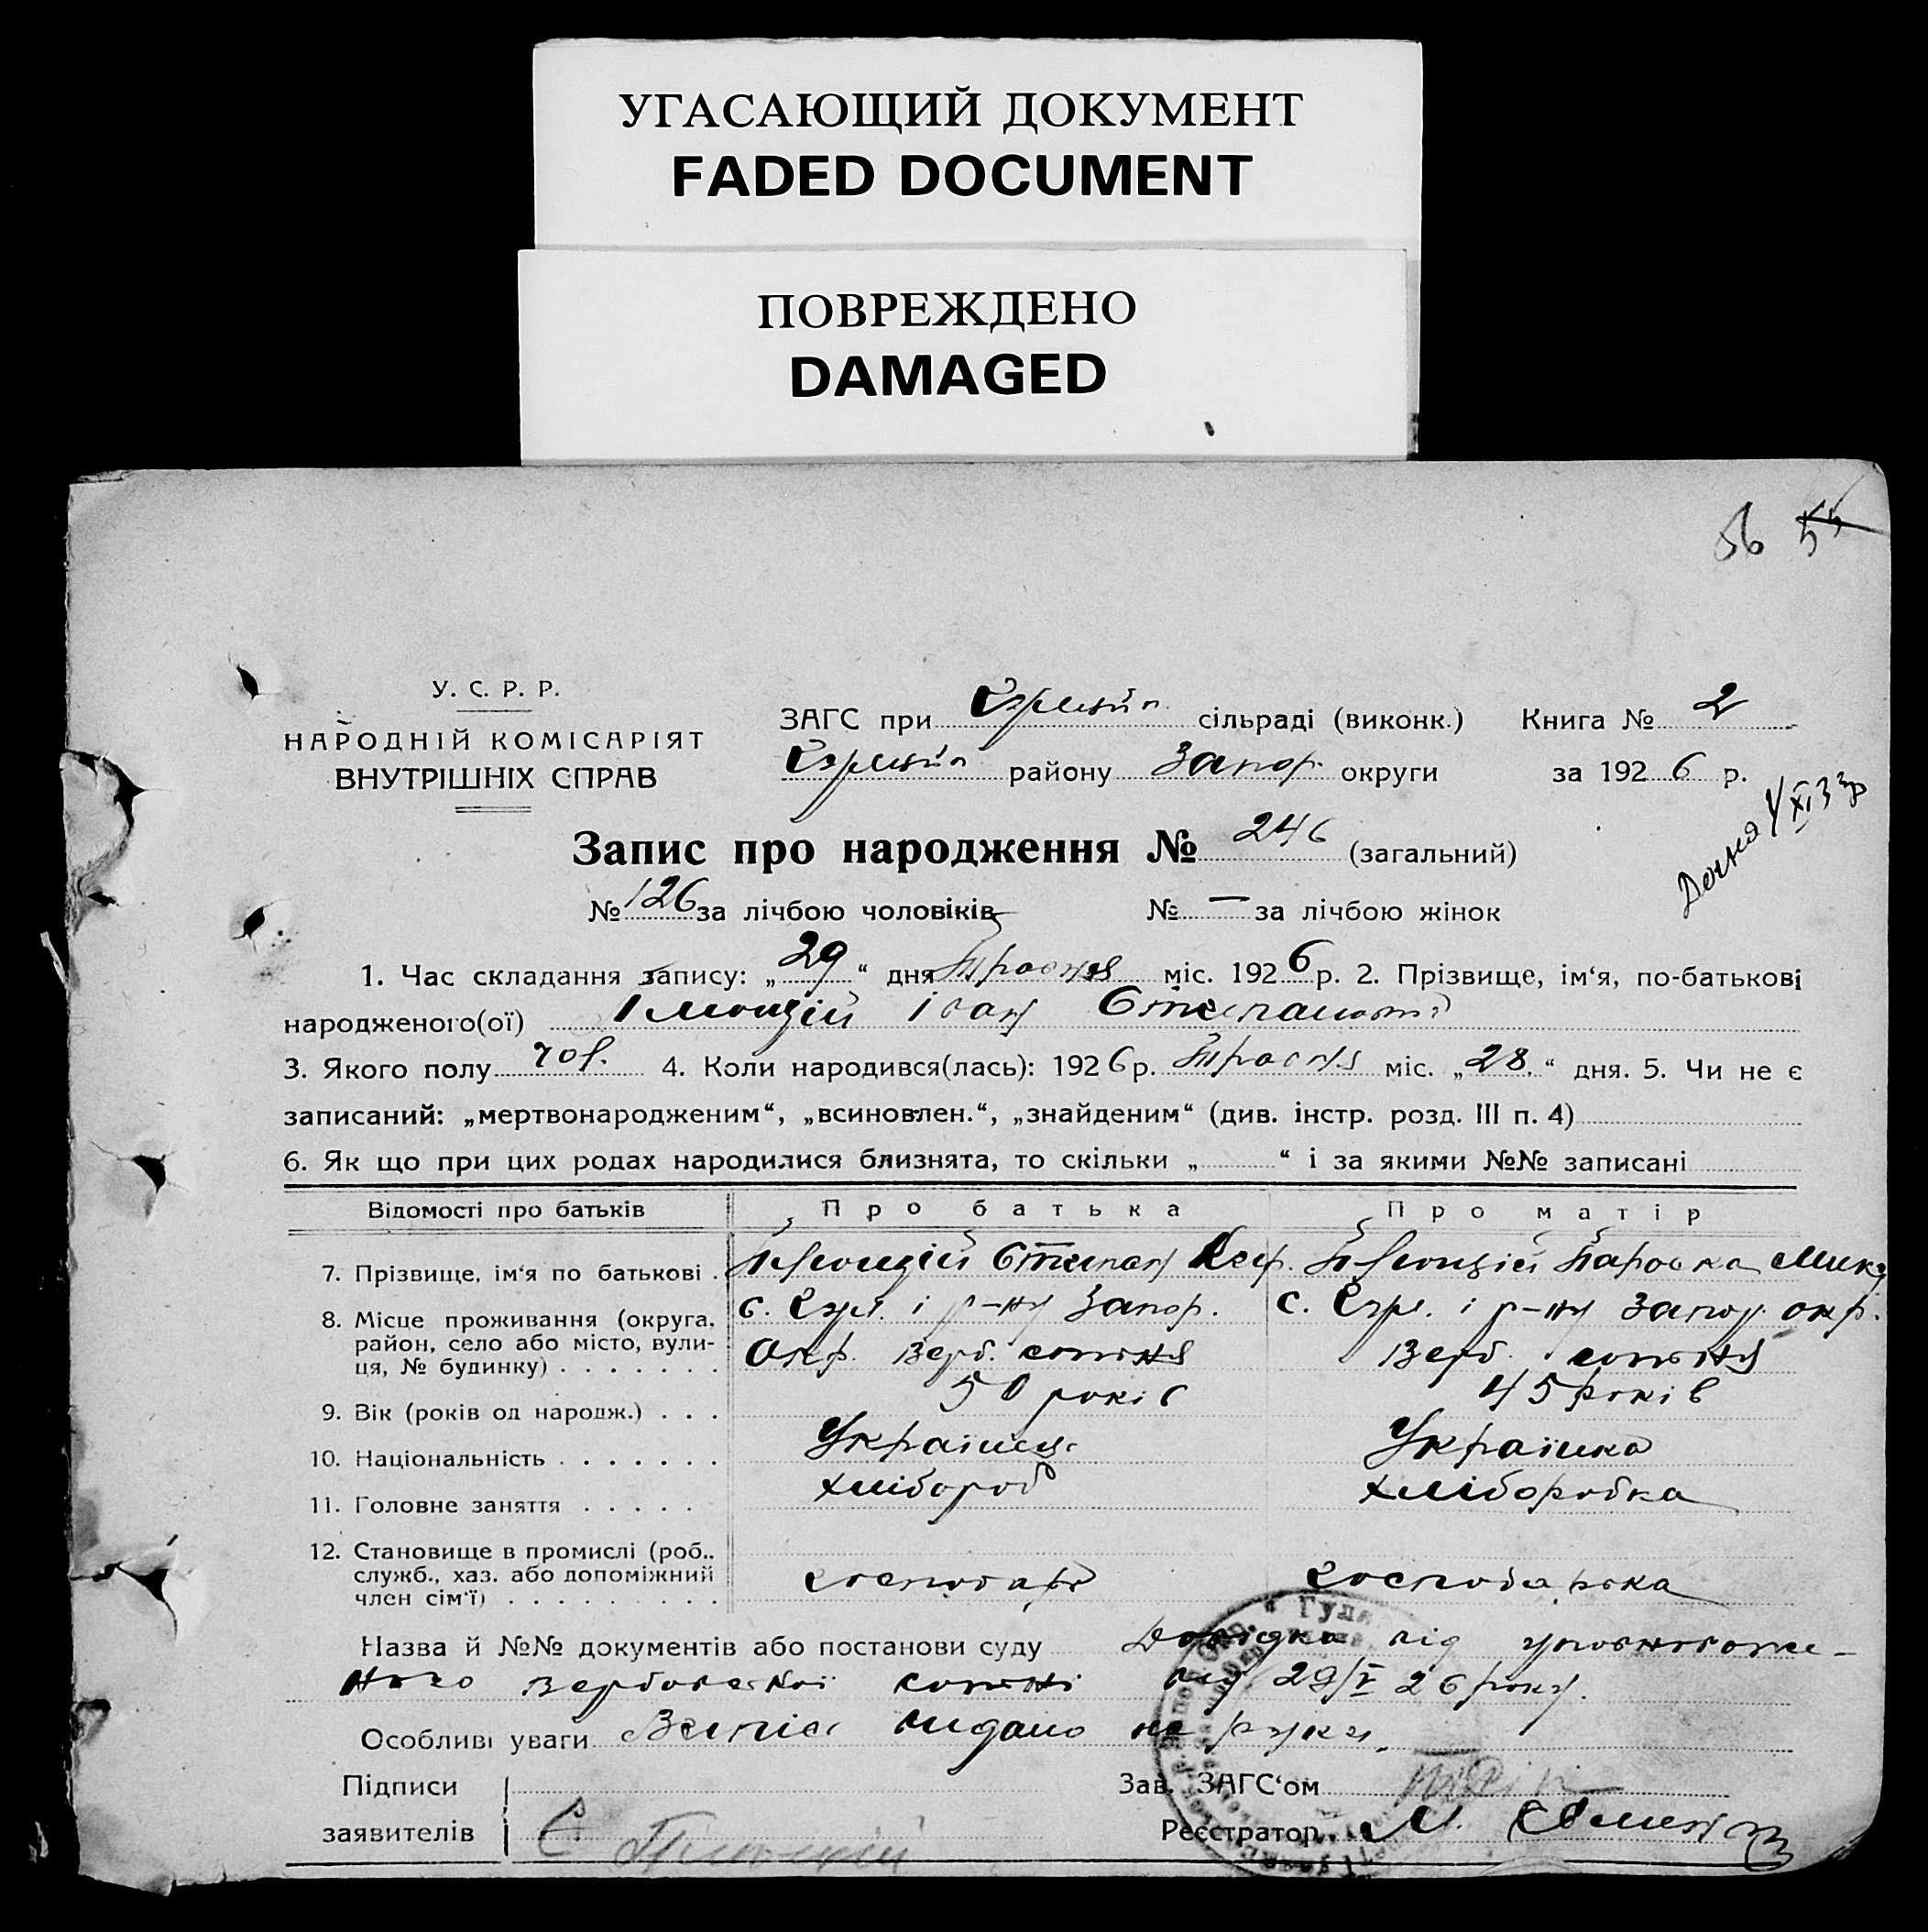 УГАСАЮЩИЙ ДОКУМЕНТ
FADED DOCUMENT
ПОВРЕЖДЕНО
DAMAGED
56 55
У. С. Р. Р.
НАРОДНІЙ КОМІСАРІЯТ
ВНУТРІШНІХ СПРАВ
ЗАГС при сільраді (виконк.) Книга № 2
району Запор. округи за 1926 р.
Запис про народження № 246 (загальний)
№ 126 за лічбою чоловіків № — за лічбою жінок
1. Час складання запису: „29“ дня Травня міс. 1926 р. 2. Прізвище, ім‘я, по-батькові
народженого(ої) Іван Степанов
3. Якого полу чол. 4. Коли народився(лась): 1926 р. Травня міс. „28.“ дня. 5. Чи не є
записаний: „мертвонародженим“, „всиновлен.“, „знайденим“ (див. інстр. розд. III п. 4)
6. Як що при цих родах народилися близнята, то скільки „ “ і за якими №№ записані
Відомості про батьків Про батька Про матір
7. Прізвище, ім‘я по батькові . Степан
8. Місце проживання (округа, с. і р-ну Запор. с. і р-ну Запор. окр.
район, село або місто, вули-
ця, № будинку) . . . . . . . Окр. Верб. сотня Верб. сотня
9. Вік (років од народж.) . . . 50 років 45 років
10. Національність . . . . . . . Українець Українка
11. Головне заняття . . . . . хлібороб хліборобка
12. Становище в промислі (роб..
служб., хаз. або допоміжний
член сім‘ї) . . . . . . . . . господарь господарка
Назва й №№ документів або постанови суду Довідка від уповноваже-
ного Вербовської сотні від 29/V 26 року.
Особливі уваги видано на руки.
Підписи Зав. ЗАГС‘ом
заявителів Реєстратор